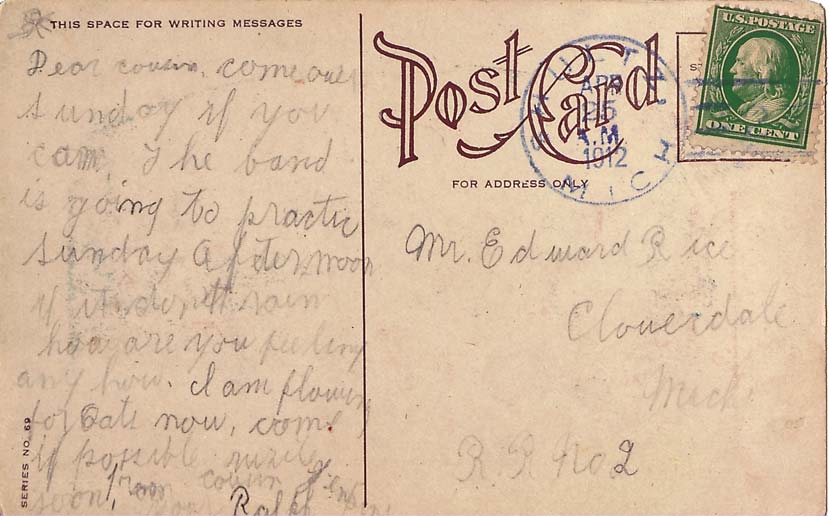 THIS SPACE FOR WRITING MESSAGES
Dear cousin, come over
sunday if you
can, The band
is going to practic
sunday Afternoon
if it don't rain
how are you feeling
any how. I am plowin
for Oats now, come
if possible write
soon, from cousin
Ralph
SERIES NO. 69
Post Card
FOR ADDRESS ONLY
U.S. POSTAGE
ONE CENT
APR
25
A.M.
1912
MICH
Mr. Edward Rice
Cloverdale
Mich
R. F. No 2